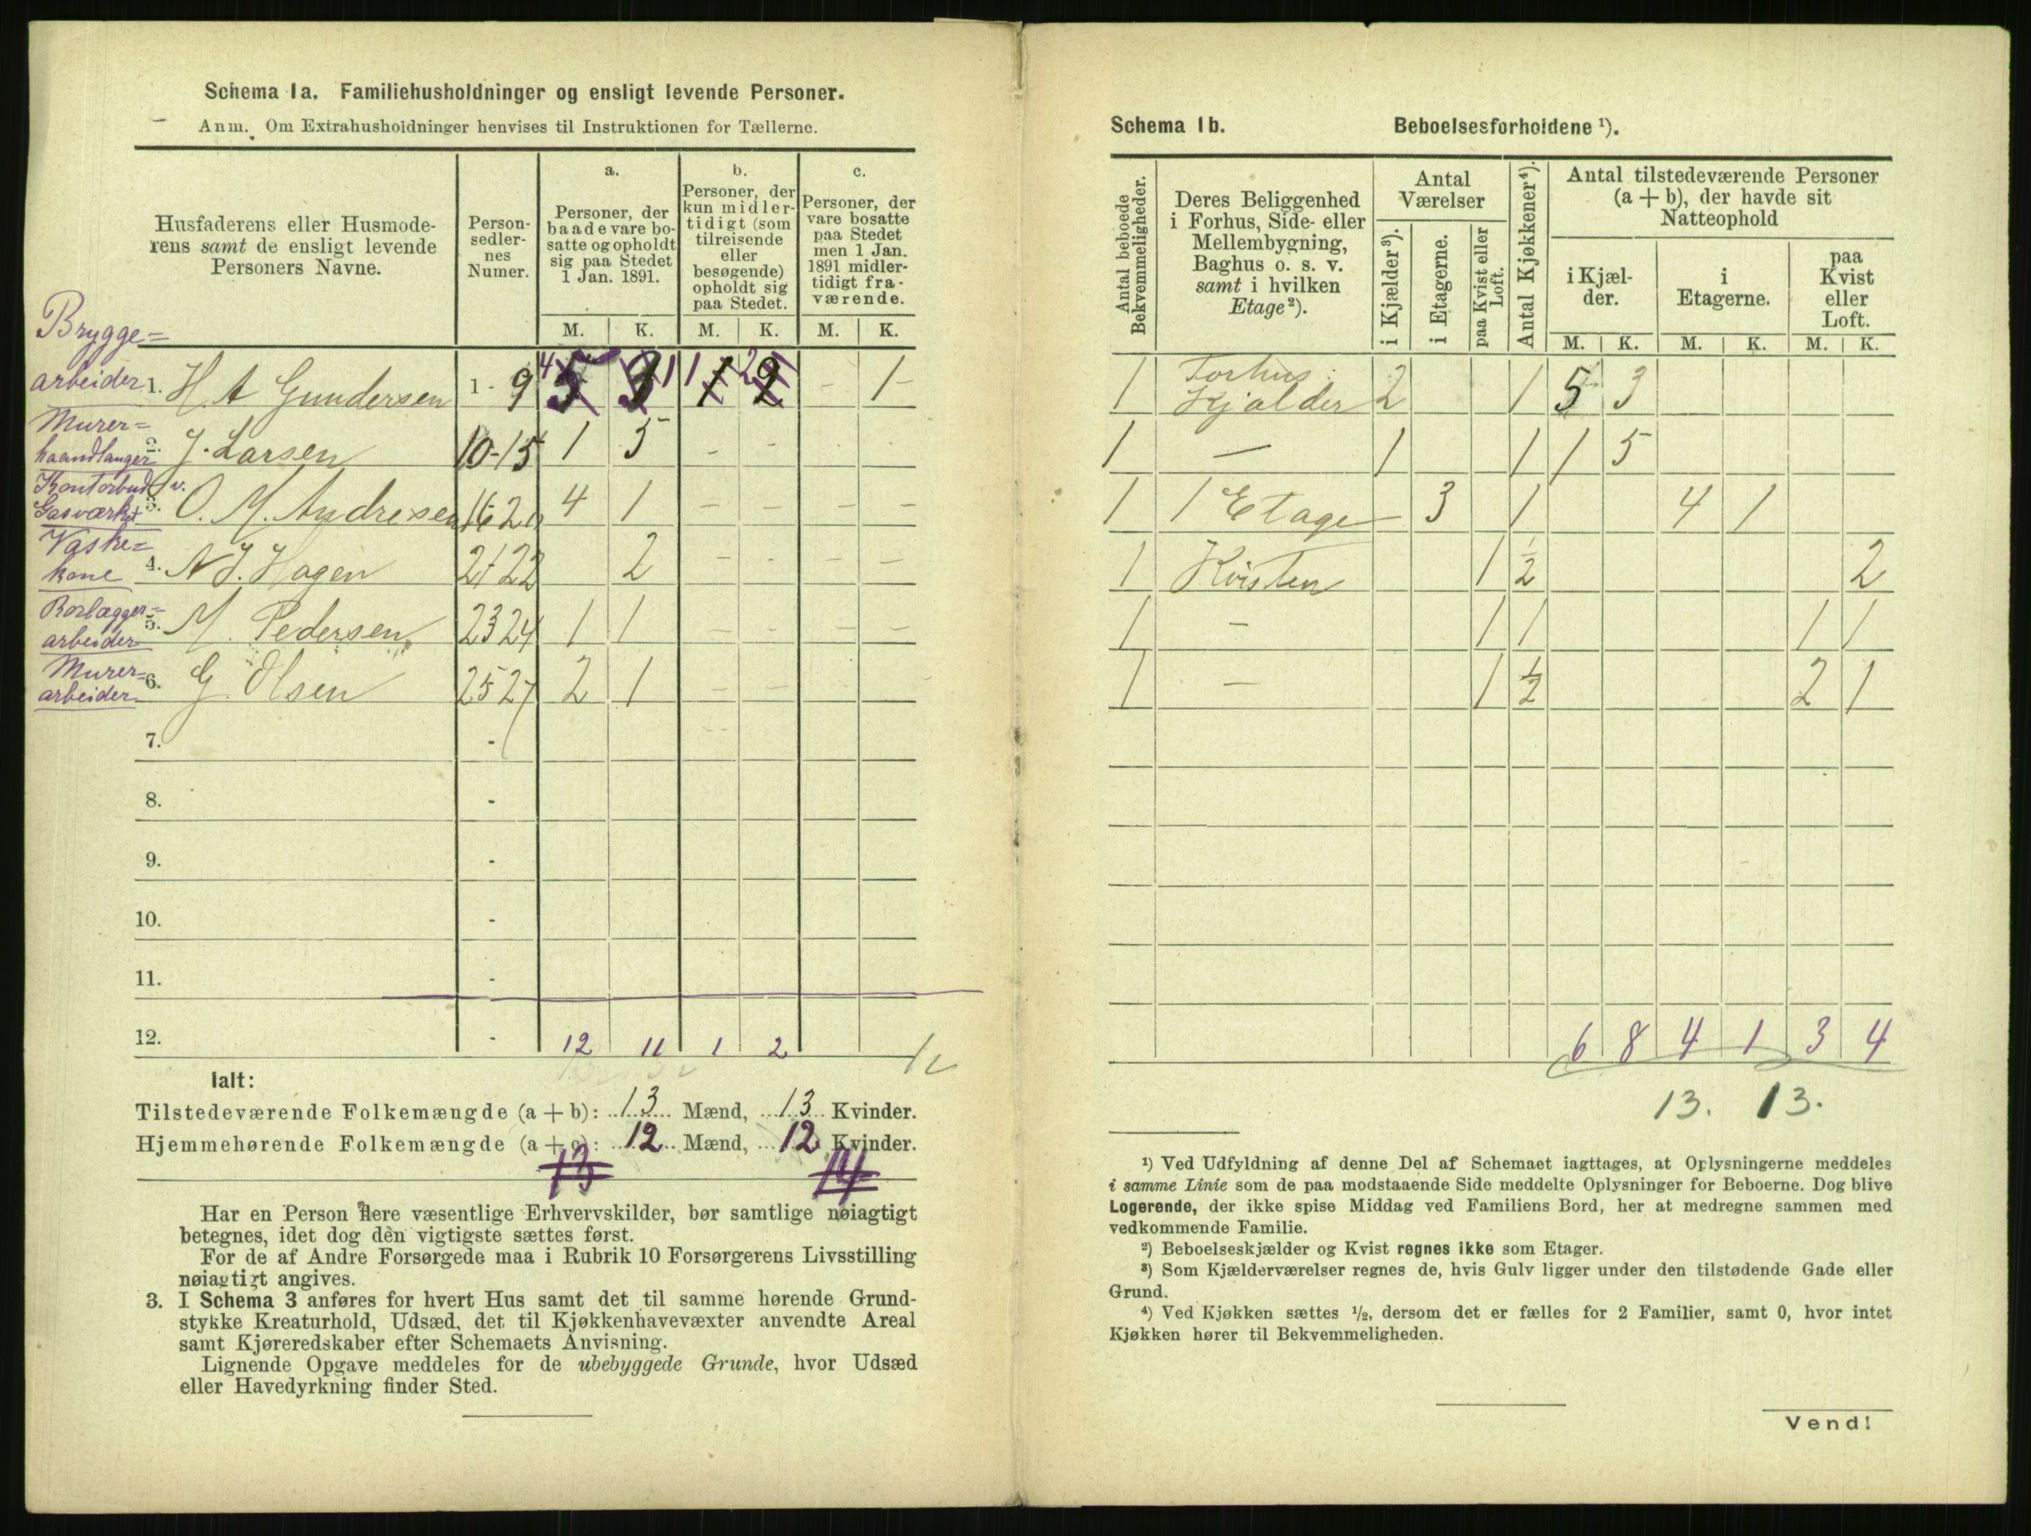 Schema 1a. Familiehusholdninger og ensligt levende Personer.
Anm. Om Extrahusholdninger henvises til Instruktionen for Tællerne.
Husfaderens eller Husmode-
rens samt de ensligt levende
Personers Navne.
Person-
sedler-
nes
Numer.
a.
Personer, der
baade vare bo-
satte og opholdt
sig paa Stedet
1 Jan. 1891.
b.
Personer, der
kun midler-
tidigt (som
tilreisende
eller
besøgende)
opholdt sig
paa Stedet.
c.
Personer, der
vare bosatte
paa Stedet
men 1 Jan.
1891 midler-
tidigt fra-
værende.
M. K. M. K. M. K.
Brygge=
arbeider 1. H A Gundersen 1 - 9 4 5 3 1 1 1 2 2 - 1-
Murer=
haandlanger 2. J. Larsen 10-15 1 5 - -
Kontorbud v.
Gasværket 3. O. M. Andresen 16 20 4 1 - - - -
Vaske=
kone 4. N J. Hagen 21 22 2 - - - -
Rorlægger=
arbeider 5. M. Pedersen 23 24 1 1 - - - -
Murer=
arbeider 6. G. Olsen 25 27 2 1 - -
7. -
8. -
9. -
10. -
11. -
12. - 12 11 1 2
Ialt:
Tilstedeværende Folkemængde (a + b): 13 Mænd, 13 Kvinder.
Hjemmehørende Folkemængde (a + c): 12 Mænd, 12 Kvinder.
13 14
Har en Person flere væsentlige Erhvervskilder, bør samtlige nøiagtigt
betegnes, idet dog den vigtigste sættes først.
For de af Andre Forsørgede maa i Rubrik 10 Forsørgerens Livsstilling
nøiagtigt angives.
3. I Schema 3 anføres for hvert Hus samt det til samme hørende Grund-
stykke Kreaturhold, Udsæd, det til Kjøkkenhavevæxter anvendte Areal
samt Kjøreredskaber efter Schemaets Anvisning.
Lignende Opgave meddeles for de ubebyggede Grunde, hvor Udsæd
eller Havedyrkning finder Sted.
Schema 1b. Beboelsesforholdene ¹).
Antal beboede
Bekvemmeligheder.
Deres Beliggenhed
i Forhus, Side- eller
Mellembygning,
Baghus o. s. v.
samt i hvilken
Etage²).
Antal
Værelser
i Kjælder³).
i Etagerne.
paa Kvist eller
Loft.
Antal Kjøkkener⁴).
Antal tilstedeværende Personer
(a + b), der havde sit
Natteophold
i Kjæl-
der.
i
Etagerne.
paa
Kvist
eller
Loft.
M. K. M. K. M. K.
1 Forhus
Kjælder 2 1 5 3
1 - 1 1 1 5
1 1 Etage 3 1 4 1
1 Kvisten 1 ½ 2
1 - 1 1 1 1
1 - 1 ½ 2 1
6 8 4 1 3 4
13. 13.
¹) Ved Udfyldning af denne Del af Schemaet iagttages, at Oplysningerne meddeles
i samme Linie som de paa modstaaende Side meddelte Oplysninger for Beboerne. Dog blive
Logerende, der ikke spise Middag ved Familiens Bord, her at medregne sammen med
vedkommende Familie.
²) Beboelseskjælder og Kvist regnes ikke som Etager.
³) Som Kjælderværelser regnes de, hvis Gulv ligger under den tilstødende Gade eller
Grund.
⁴) Ved Kjøkken sættes ½, dersom det er fælles for 2 Familier, samt 0, hvor intet
Kjøkken hører til Bekvemmeligheden.
Vend!